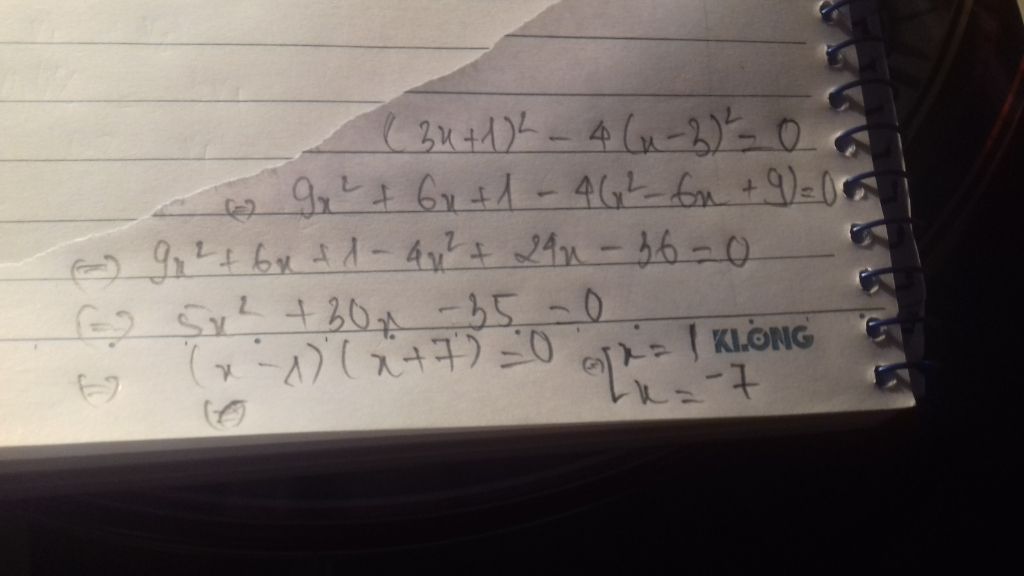 (3x+1)² - 4(x-3)² = 0
⇔ 9x² + 6x + 1 - 4(x² - 6x + 9) = 0
⇔ 9x² + 6x + 1 - 4x² + 24x - 36 = 0
⇔ 5x² + 30x - 35 = 0
⇔ (x - 1)(x + 7) = 0 ⇔ [x = 1
x = -7
KLONG